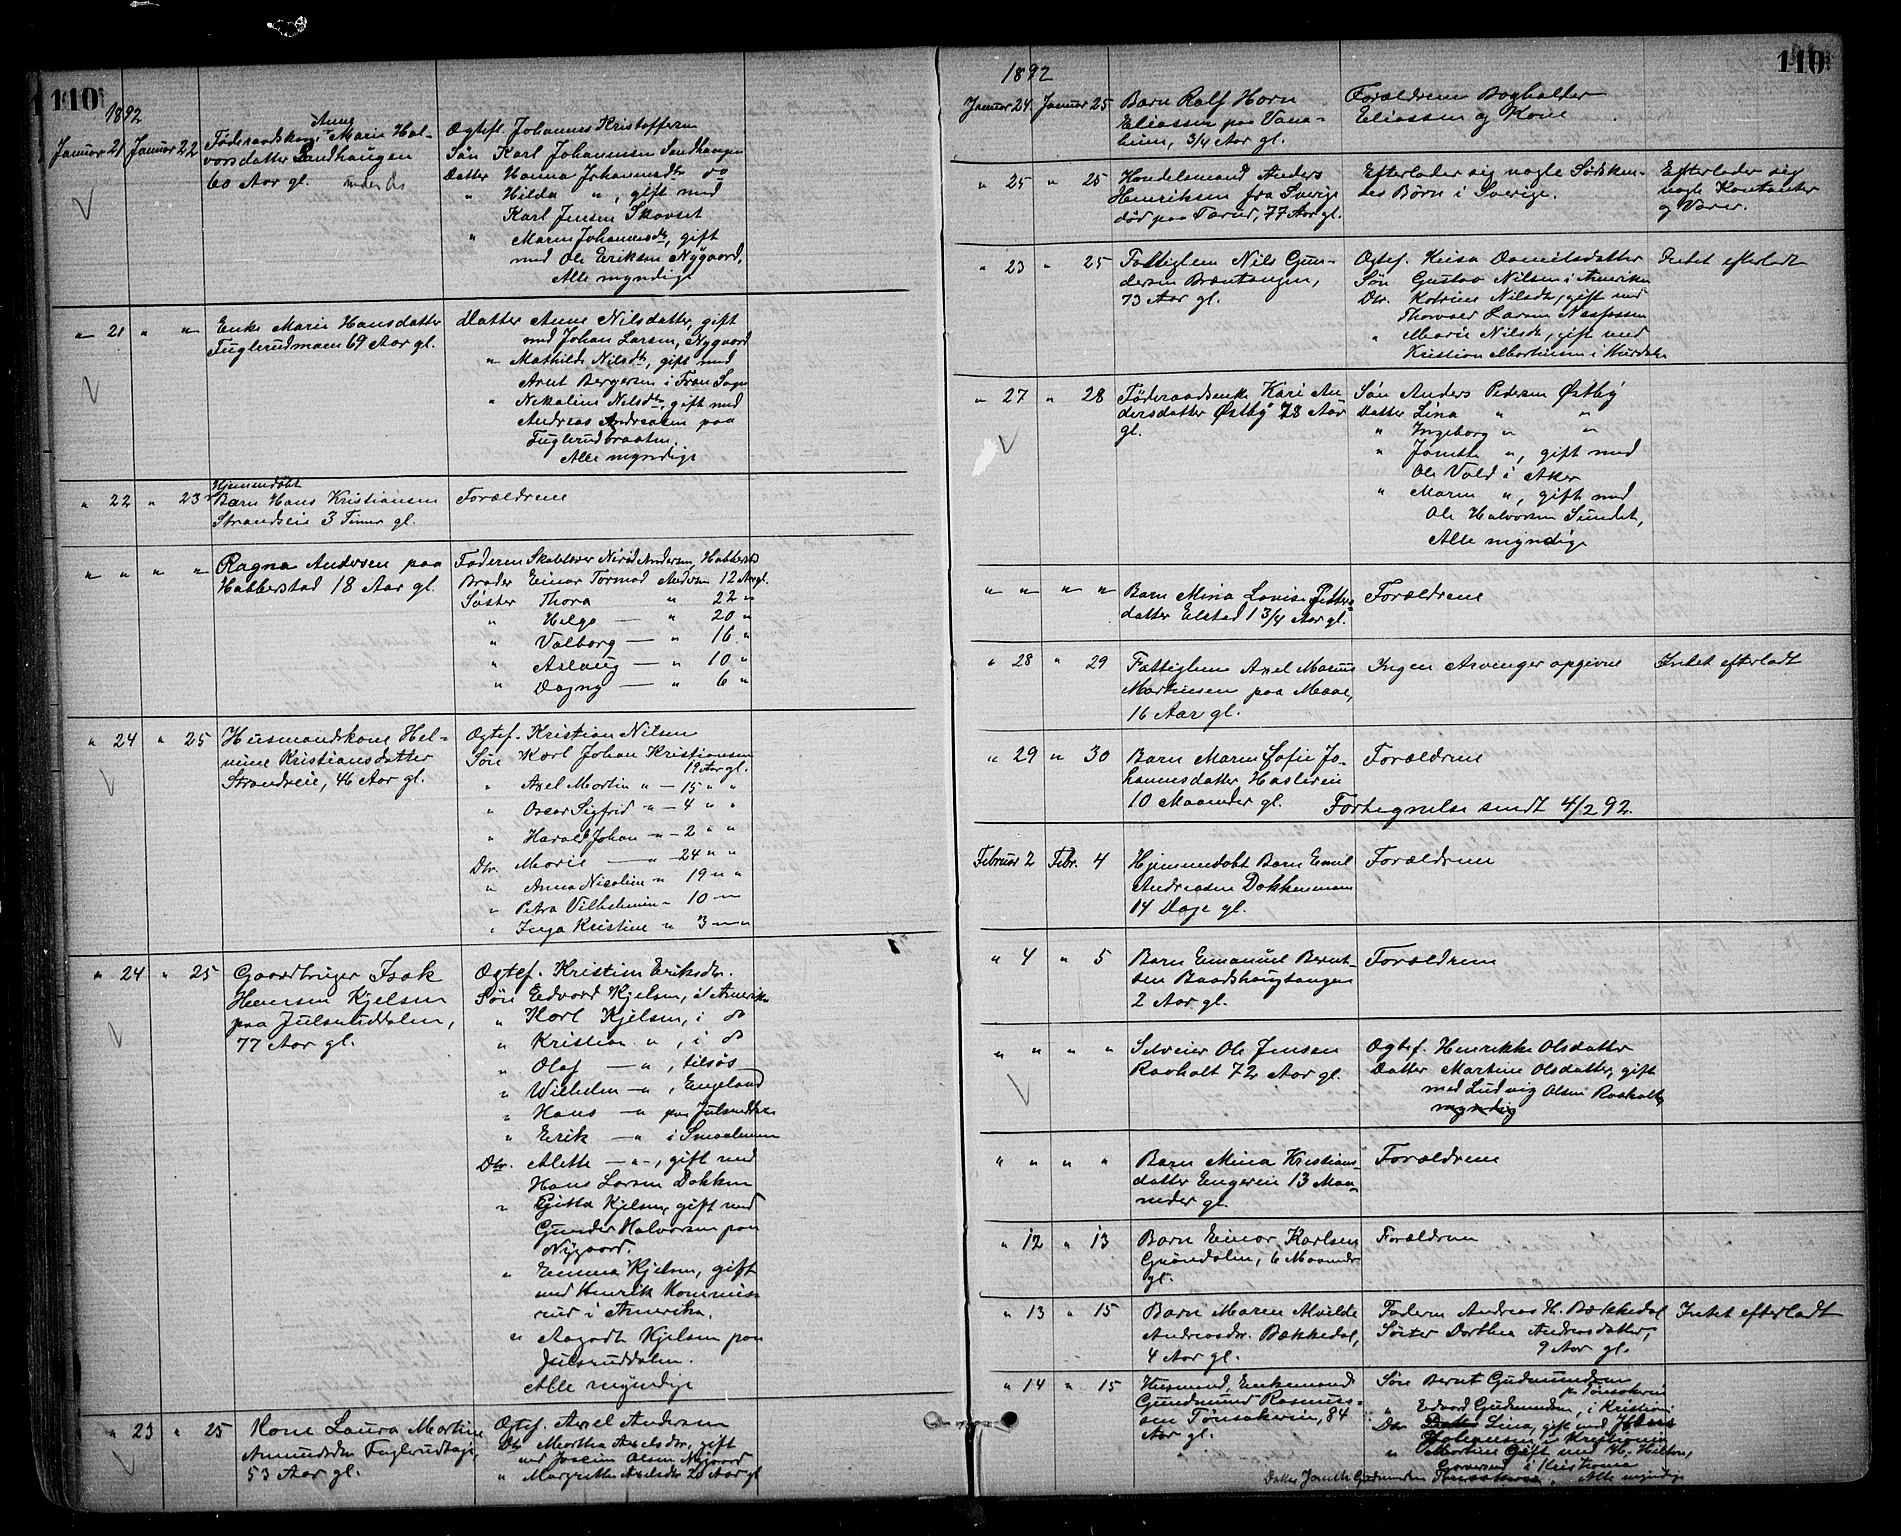 110
1892
Januar 21 Januar 22 Føderaadskone Anne Marie Hal-
vorsdatter Sandhaugen
60 Aar gl.
Ogtefl. Johannes Kristoffersen
Søn Karl Johannesen Sandhaugen
Datter Hanna Johannesdtr do
" Hilda ", gift med
Karl Jensen Skovset
" Maren Johannesdtr, gift
med Ole Eriksen Nygaard.
Alle myndige
" 21 " " Enke Marie Hansdatter
Fuglerudmoen 69 Aar gl.
Datter Anne Nilsdatter, gift
med Johan Larsen, Nygaard
" Mathilde Nilsdtr, gift med
Arnt Bergersen i Fron Sogn
" Nikoline Nilsdtr, gift med
Andreas Andreasen paa
Fuglerudbraaten.
Alle myndige
" 22 " 23 Hjemmedøbt
Barn Hans Kristiansen
Strandseie 3 Timer gl.
Forældrene
" " " " Ragna Andersen paa
Habberstad 18 Aar gl.
Faderen Skolelærer Andersen, Habberstad
Broder Einar Tormod Andersen 12 Aar gl.
Søster Thora " 22 "
" Helga — " 20 "
" Valborg — " 16 "
" Aslaug — " 10 "
" Dagny — " 6 "
" 24 " 25 Husmandskone Hel-
mine Kristiansdatter
Strandseie, 46 Aar gl.
Ogtef. Kristian Nilsen
Søn Karl Johan Kristiansen
19 Aar gl.
" Axel Martin " — 15 " "
" Oscar Sigfrid " — 4 " "
" Harald Johan — " — 2 " "
Dtr. Marie — " — 24 " "
" Anna Nicoline " 19 " "
" Petra Vilhelmine " 10 —
" Inga Kristine " 3 — "
" 24 " 25 Gaardbruger Isak
Hansen Kjelsen
paa Julsruddalen,
77 Aar gl.
Ogtef. Kristine Eriksdtr.
Søn Edvard Kjelsen, i Amerika
" Karl Kjelsen, i do
" Kristian ", i do
" Olaf — ", tilsøs
" Wilhelm — ", England
" Hans — " paa Julsruddalen
" Erik — " i Smaalenene
Dtr. Alette — " —, gift med
Hans Larsen Dokken
" Gitta Kjelsen, gift med
Gunder Halvorsen paa
Nygaard.
" Emma Kjelsen, gift
med Henrik Kommis-
rud i Amerika.
" Aagodt Kjelsen paa
Julsruddalen.
Alle myndige
" 23 " 25 Kone Laura Martine
Amundsdtr Fuglerudhagen
53 Aar gl.
Ogtef. Axel Andersen
Dtr Martha Axelsdtr, gift
med Joacim Olsen Nygaard
" Margrethe Axelsdtr 20 Aar gl
110
1892
Januar 24 Januar 25 Barn Ralf Horn
Eliassen paa Vana-
heim, 3/4 Aar gl.
Forældrene Bogholder
Eliassen og Kone
" 25 " 25 Handelsmand Anders
Henriksen fra Sverige
død paa Tærud, 77 Aar gl.
Efterlader sig nogle Søsken-
des Børn i Sverige.
Efterlader sig
nogle Kontanter
og Varer.
" 23 " 25 Fattiglem Nils Gun-
dersen Bræntangen,
73 Aar gl.
Ogtef. Kersa Danielsdatter
Søn Gustav Nilsen i Amerika
Dtr. Katrine Nilsdtr, gift med
Thorvald Larsen Nesfossen
" Marie Nilsdtr, gift med
Kristian Martinsen i Hurdalen
Intet efterladt
" 27 " 28 Føderaadsenke Kari An-
dersdatter Østby 78 Aar
gl.
Søn Anders Pedersen Østby
Datter Lina " "
" Ingeborg " "
" Janette ", gift med
Ole Vold i Aker
" Maren ", gift med
Ole Halvorsen Sundet,
Alle myndige
" " " " Barn Mina Lovise Petters-
datter Elstad 1 3/4 Aar gl.
Forældrene
" 28 " 29 Fattiglem Axel Marius
Martinsen paa Moae,
16 Aar gl.
Ingen Arvinger opgivne
Intet efterladt
" 29 " 30 Barn Maren Sofie Jo-
hannesdatter Haslerie
10 Maaneder gl.
Forældrene
Fortegnelse sendt 4/2 92.
Februar 2 Febr. 4 Hjemmedøbt Barn Emil
Andreasen Dokkenmoen
14 Dage gl.
Forældrene
" 4 " 5 Barn Emanuel Bernt-
sen Baadshaugtangen
2 Aar gl.
Forældrene
" " " " Selveier Ole Jensen
Raaholt 72 Aar gl.
Ogtef. Henrikke Olsdatter
Datter Martine Olsdatter, gift
med Ludvig Olsen Raaholt,
myndig
" " " " Barn Mina Kristians-
datter Engereie 13 Maa-
neder gl.
Forældrene
" 12 " 13 Barn Einar Karlsen
Grøndalen, 6 Maaneder
gl.
Forældrene
" 13 " 15 Barn Maren Alvilde
Andreasdtr. Bækkedal,
4 Aar gl.
Faderen Andreas H. Bækkedal
Søster Dorthea Andreasdatter,
9 Aar gl.
Intet efterladt
" 14 " 15 Husmand, Enkemand
Gundmund Rasmus-
sen Tønsakereie, 84
Aar gl.
Søn Bernt Gudmundsen
paa Tønsakereie
" Edvard Gudmundsen, i Kristiania
Dtr Lina, gift med Hans
Johansen i Kristiania
" Martine gift med H. Hilton,
i Kristiania
Datter Janette Gudmundsen Tønsakereie, Alle myndige